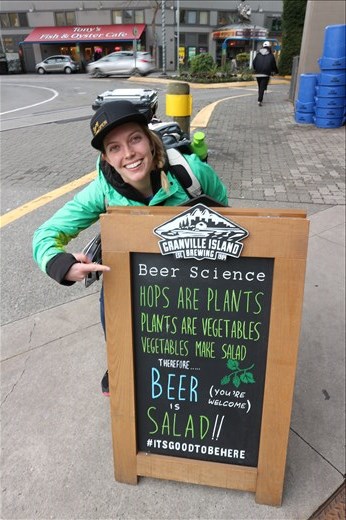 Tony's
Fish & Oyster Cafe
GRANVILLE ISLAND
BREWING
Beer Science
HOPS ARE PLANTS
PLANTS ARE VEGETABLES
VEGETABLES MAKE SALAD
THEREFORE.....
BEER
IS
SALAD!!
(YOU'RE
WELCOME)
#ITSGOODTOBEHERE